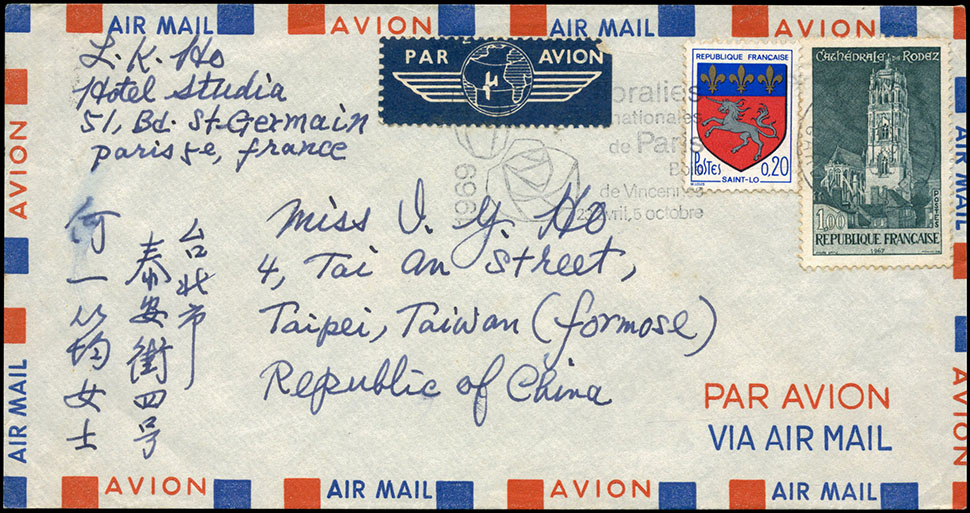 AIR MAIL AVION AIR MAIL AVION AIR MAIL AVION
L. K. Ho
Hotel Studia
51, Bd. St-Germain
paris 5e, france
PAR AVION
oralies
nationales
de Paris
Bo
de Vincennes
avril, 5 octobre
1969
REPUBLIQUE FRANÇAISE
POSTES
0,20
SAINT-LO
CATHÉDRALE DE RODEZ
POSTES
1,00
REPUBLIQUE FRANÇAISE
1967
台北市
泰安街四号
何一均女士
Miss I. Y. Ho
4, Tai An Street,
Taipei, Taiwan (formose)
Republic of China
PAR AVION
VIA AIR MAIL
AVION
AIR MAIL
AIR MAIL
AVION
AVION AIR MAIL AVION AIR MAIL